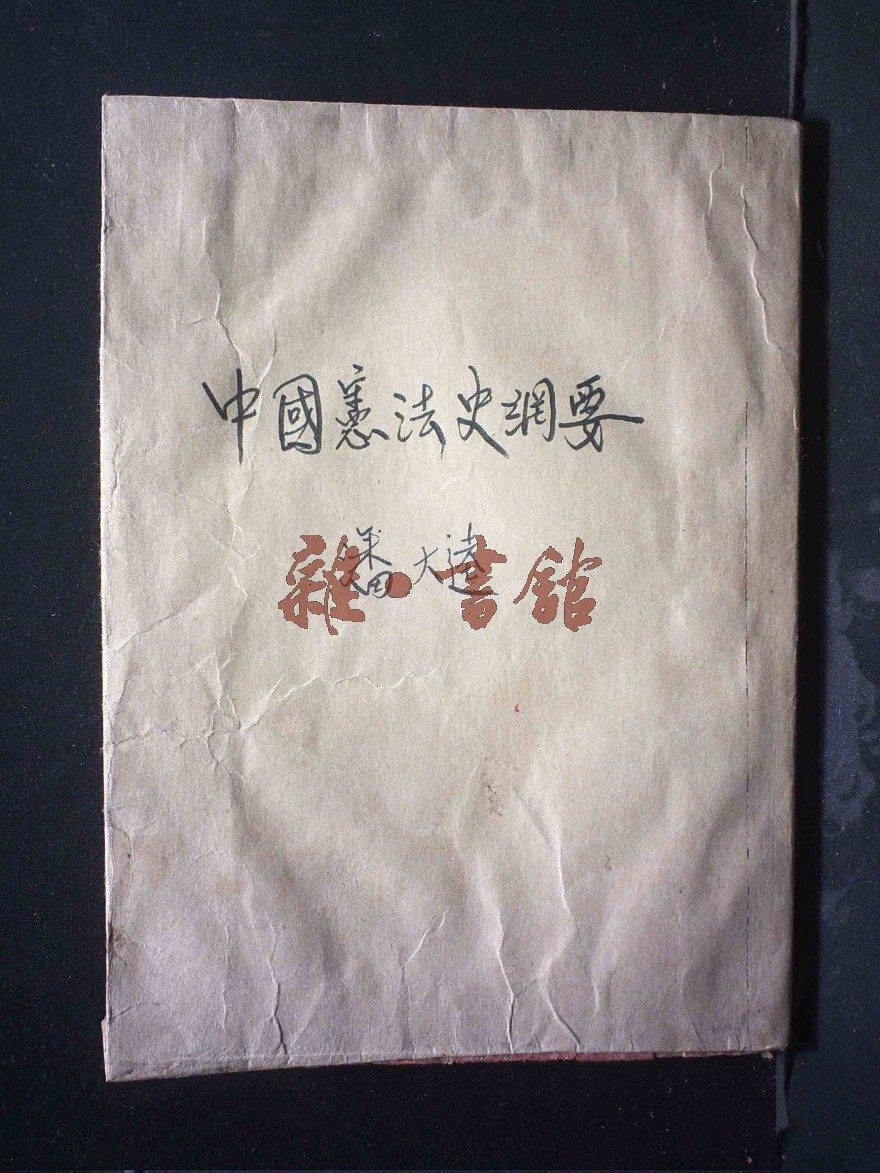 中國憲法史綱要
潘大逵
雜·書館